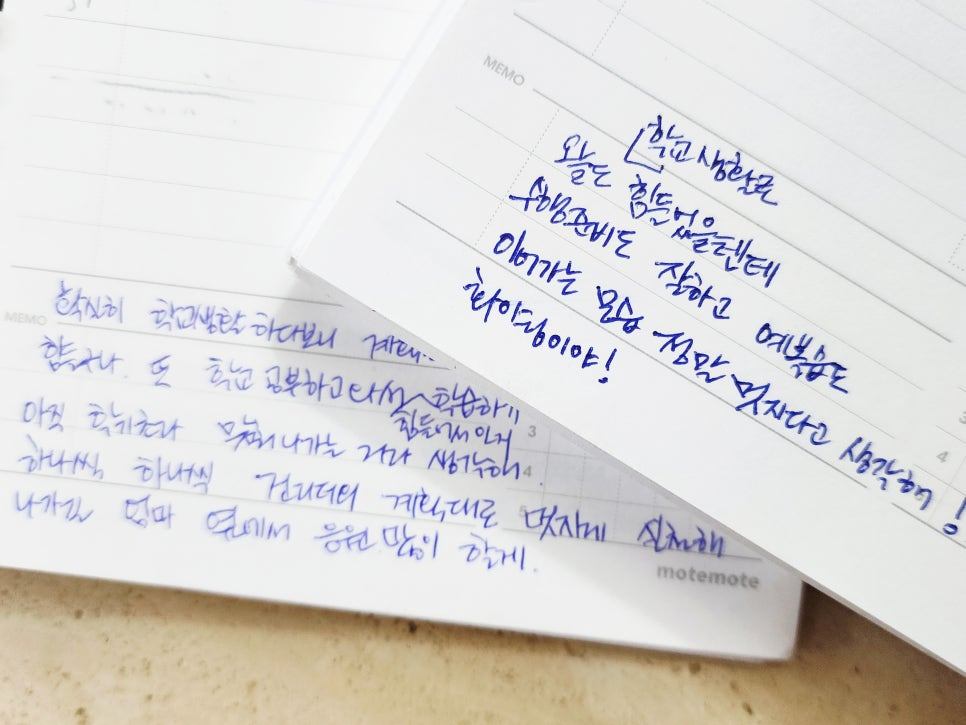 MEMO
학교 생활로
오늘도 힘들었을텐데
수행준비도 잘하고 예복습도
이어가는 모습 정말 멋지다고 생각해!
화이팅이야!
4
MEMO
확실히 학교생활 하다보니
힘들구나. 또 학교 공부하고 학습하기
힘들어서인지
아직 학기초라 맞춰나가는 거라 생각해.
하나씩 하나씩 계획대로 멋지게 실천해
나가길 엄마 옆에서 응원 많이 할게.
3
4
5
motemote